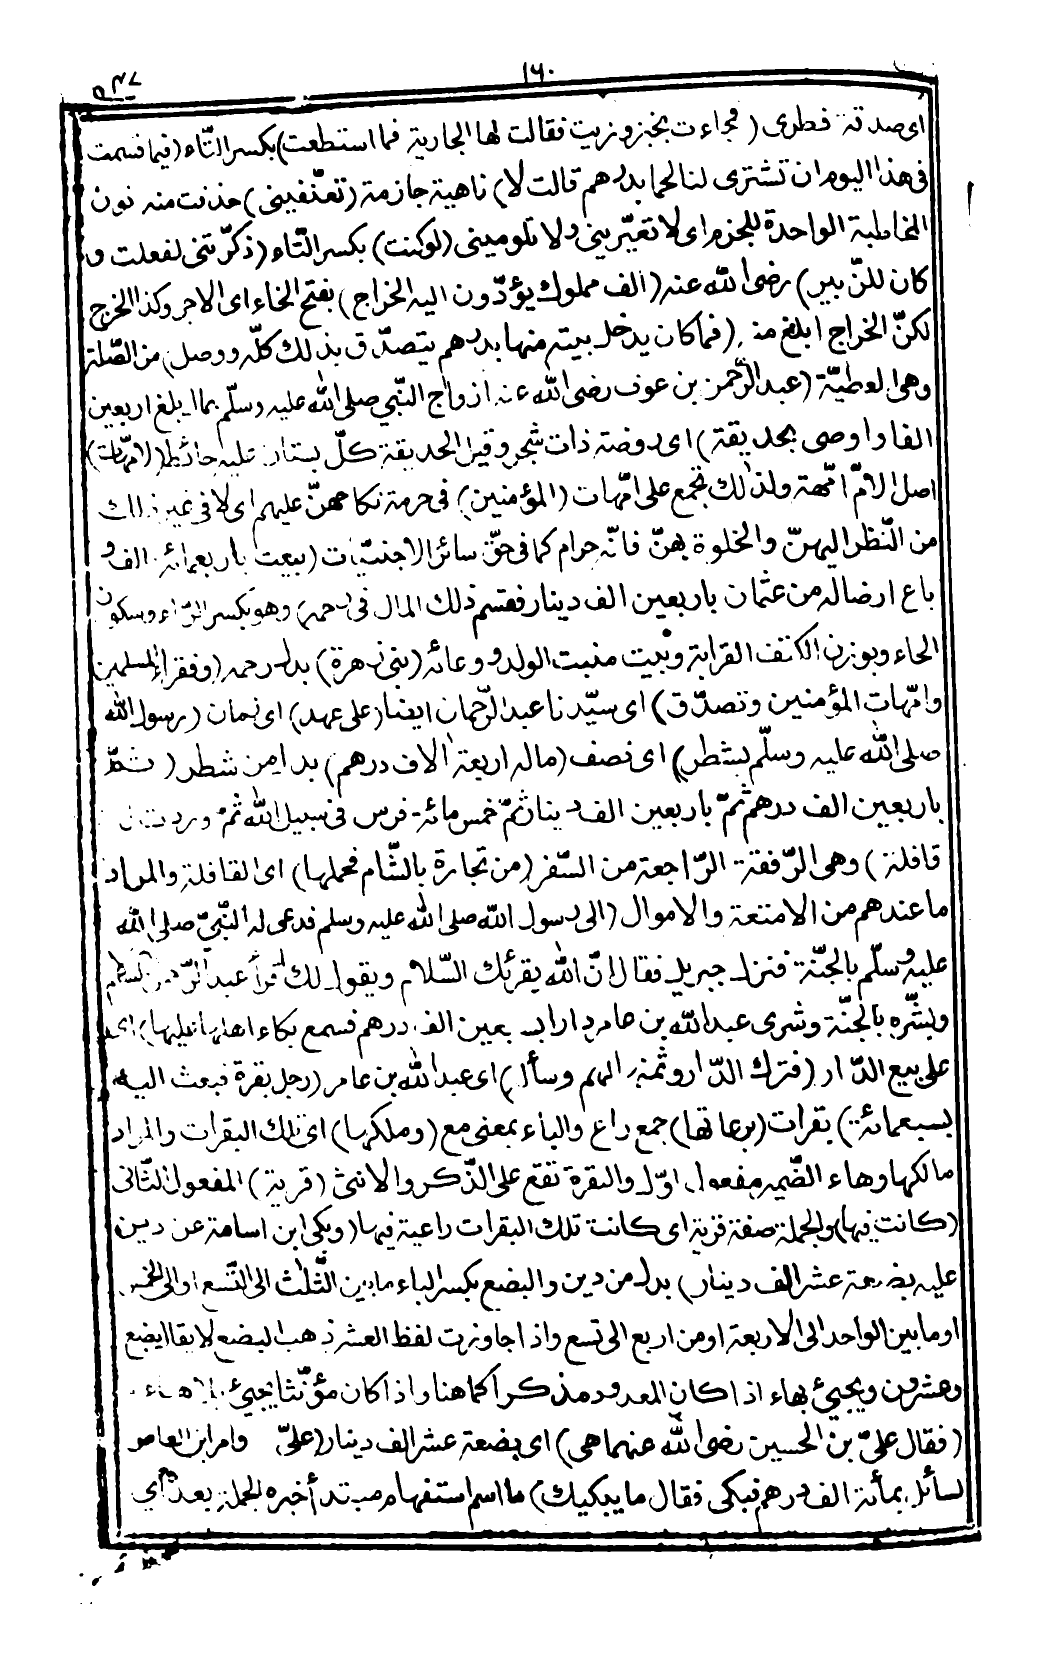 ١٦٠
اى صدقة فطرى (فجاءت بخبز وزيت فقالت لها الجارية فما استطعت) بكسر التّاء (فيما قسمت
فى هذا اليوم ان تشترى لنا لحما بدرهم قالت لا) ناهية جازمة (تعنّفينى) حذفت منه نون
المخاطبة الواحدة للجزم اى لا تعيّرينى ولا تلومينى (لو كنت) بكسر التّاء (ذكّرتنى لفعلت و
كان للزّبير) رضى الله عنه (الف مملوك يؤدّون اليه الخراج) بفتح الخاء اى الاجر وكذا الخرج
لكنّ الخراج ابلغ منه (فما كان يدخل بيته منها بدرهم يتصدّق بذلك كلّه ووصل) من الصّلة
وهى العطيّة (عبد الرّحمن بن عوف رضى الله عنه ازواج النّبي صلى الله عليه وسلّم بما يبلغ اربعين
الفا واوصى بحديقة) اى روضة ذات شجر وقيل الحديقة كلّ بستان عليه حائط (لامّهات)
اصل الامّ امّهة ولذلك تجمع على امّهات (المؤمنين) فى حرمة نكاحهنّ عليهم اى لا فى غير ذلك
من النّظر اليهنّ والخلوة بهنّ فانّه حرام كما فى حقّ سائر الاجنبيّات (بيعت باربعمائة الف و
باع ارضا له من عثمان باربعين الف دينار فقسم ذلك المال فى رحمه) وهو بكسر الرّاء وسكون
الحاء وبوزن الكتف القرابة وبيت منبت الولد ووعائه (بنى زهرة) بدل رحمه (وفقراء المسلمين
وامّهات المؤمنين وتصدّق) اى سيّدنا عبد الرّحمان ايضا (على عهد) اى زمان (رسول الله
صلى الله عليه وسلّم بشطر) اى نصف (ماله اربعة الاف درهم) بدل من شطر (ثمّ
باربعين الف درهم ثمّ باربعين الف دينار ثمّ خمس مائة فرس فى سبيل الله ثمّ وردت له
قافلة) وهى الرّفقة الرّاجعة من السّفر (من تجارة بالشّام فحملها) اى القافلة والمراد
ما عندهم من الامتعة والاموال (الى رسول الله صلى الله عليه وسلم فدعى له النّبىّ صلى الله
عليه وسلّم بالجنّة فنزل جبريل فقال انّ الله يقرئك السّلام ويقول لك اقرأ عبد الرّحمن السّلام
وبشّره بالجنّة وشرى عبد الله بن عامر دارا بسبعين الف درهم فسمع بكاء اهلها عليها) اى
على بيع الدّار (فترك الدّار وثمنه لهم وسأل) اى عبد الله بن عامر (رجل بقرة فبعث اليه
بسبعمائة) بقرات (برعاتها) جمع راع والباء بمعنى مع (وملكها) اى تلك البقرات والمراد
مالكها وهاء الضّمير مفعول اوّل والبقرة تقع على الذّكر والانثى (قرية) المفعول الثّانى
(كانت فيها) والجملة صفة قرية اى كانت تلك البقرات راعية فيها (وبكى ابن اسامة عن دين
عليه بضعة عشر الف دينار) بدل من دين والبضع بكسر الباء ما بين الثّلث الى التّسع او الى الخمس
او ما بين الواحد الى الاربعة او من اربع الى تسع واذا جاوزت لفظ العشر ذهب البضع لا يقال بضع
وعشرون ويجيئ بهاء اذا كان المعدود مذكرا كما هنا واذا كان مؤنّثا يجيئ بلا هاء
(فقال علىّ بن الحسين رضى الله عنهما هى) اى بضعة عشر الف دينار (علىّ وامر ابن العاص
لسائل بمأتة الف درهم فبكى فقال ما يبكيك) ما اسم استفهام مبتدأ خبره الجملة بعده اى